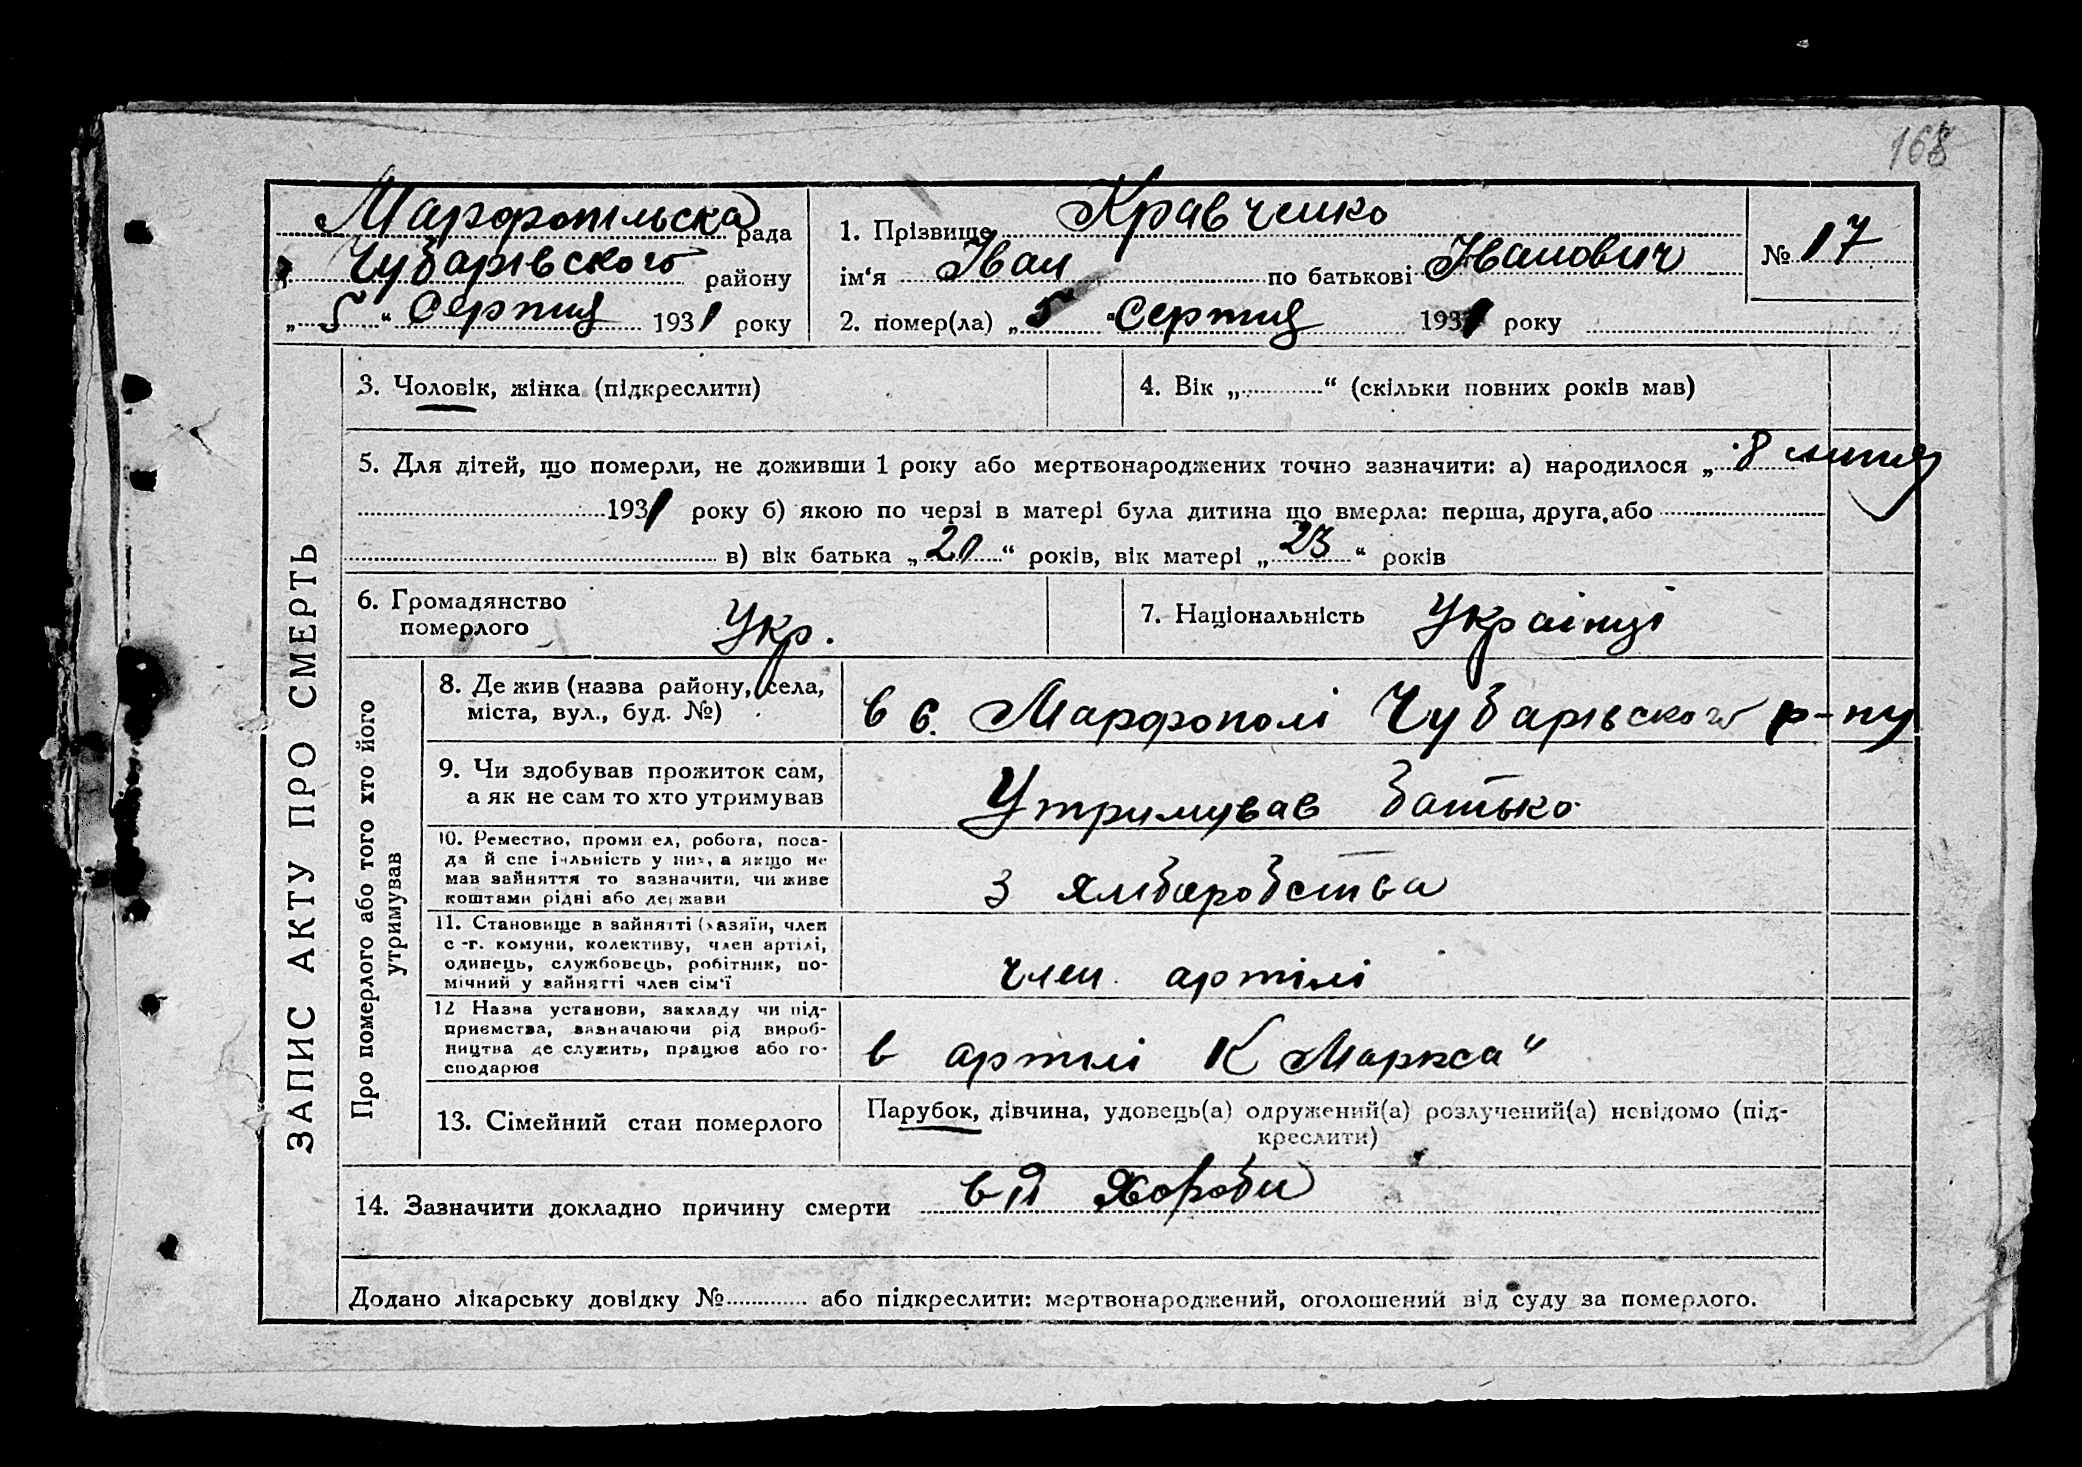 168
Марфопільска рада
Чубарівського району
„5“ Серпня 1931 року
1. Прізвище Кравченко
ім‘я Іван по батькові Іванович
2. помер(ла) „5“ Серпня 1931 року
№ 17
ЗАПИС АКТУ ПРО СМЕРТЬ
3. Чоловік, жінка (підкреслити)
4. Вік „ “ (скільки повних років мав)
5. Для дітей, що померли, не доживши 1 року або мертвонароджених точно зазначити: а) народилося „8 липня
1931 року б) якою по черзі в матері була дитина що вмерла: перша, друга, або
в) вік батька „20“ років, вік матері „23“ років
6. Громадянство
померлого
Укр.
7. Національність Українці
Про померлого або того хто його
утримував
8. Де жив (назва району, села,
міста, вул., буд. №)
в с. Марфополі Чубарівського р-ну
9. Чи здобував прожиток сам,
а як не сам то хто утримував
Утримував батько
10. Ремество, проми ел, робота, поса-
да й спе іяльність у них, а якщо не
мав зайняття то зазначити, чи живе
коштами рідні або держави
З хліборобства
11. Становище в зайнятті (хазяїн, член
с -г. комуни, колективу, член артілі,
одинець, службовець, робітник, по-
мічний у зайнятті член сім‘ї
член артілі
12 Назва установи, закладу чи під-
приємства, зазначаючи рід вироб-
ництва де служить, працює або го-
сподарює
в артілі К Маркса“
13. Сімейний стан померлого
Парубок, дівчина, удовець(а) одружений(а) розлучений(а) невідомо (під-
креслити)
14. Зазначити докладно причину смерти від хороби
Додано лікарську довідку № або підкреслити: мертвонароджений, оголошений від суду за померлого.